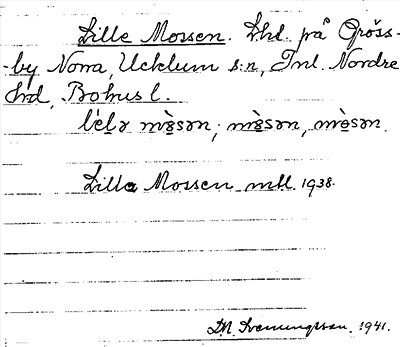 Lille Mossen. Lhl. på Gröss-
-by Norra, Ucklum s:n, Inl. Nordre
Hrd, Bohusl.
lèlə mòsən; mòsən, mòsən.
Lilla Mossen mtl. 1938.
1941.